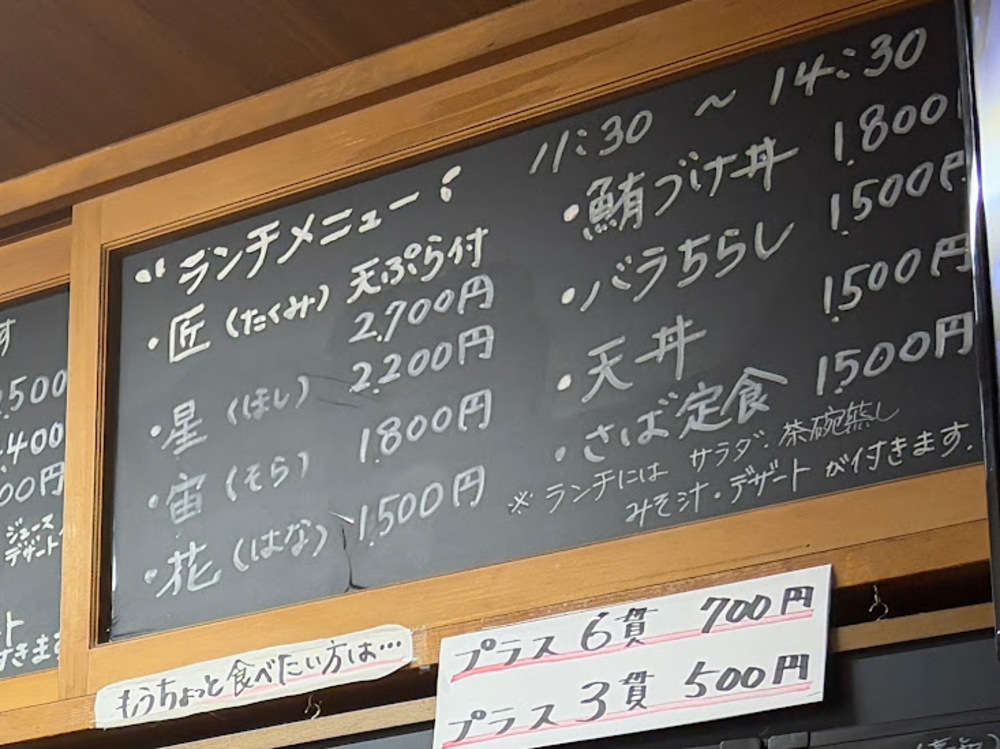 ランチメニュー
11:30 ~ 14:30
・匠(たくみ)天ぷら付
2,700円
・星(ほし) 2,200円
・宙(そら) 1,800円
・花(はな) 1,500円
・鮪づけ丼 1,800
・バラちらし 1,500円
・天丼 1,500円
・さば定食 1,500円
※ランチには サラダ・茶碗蒸し
みそ汁・デザートが付きます。
もうちょっと食べたい方は…
プラス6貫 700円
プラス3貫 500円
す
,500
,400
00円
ジュース
デザート
ト
きま